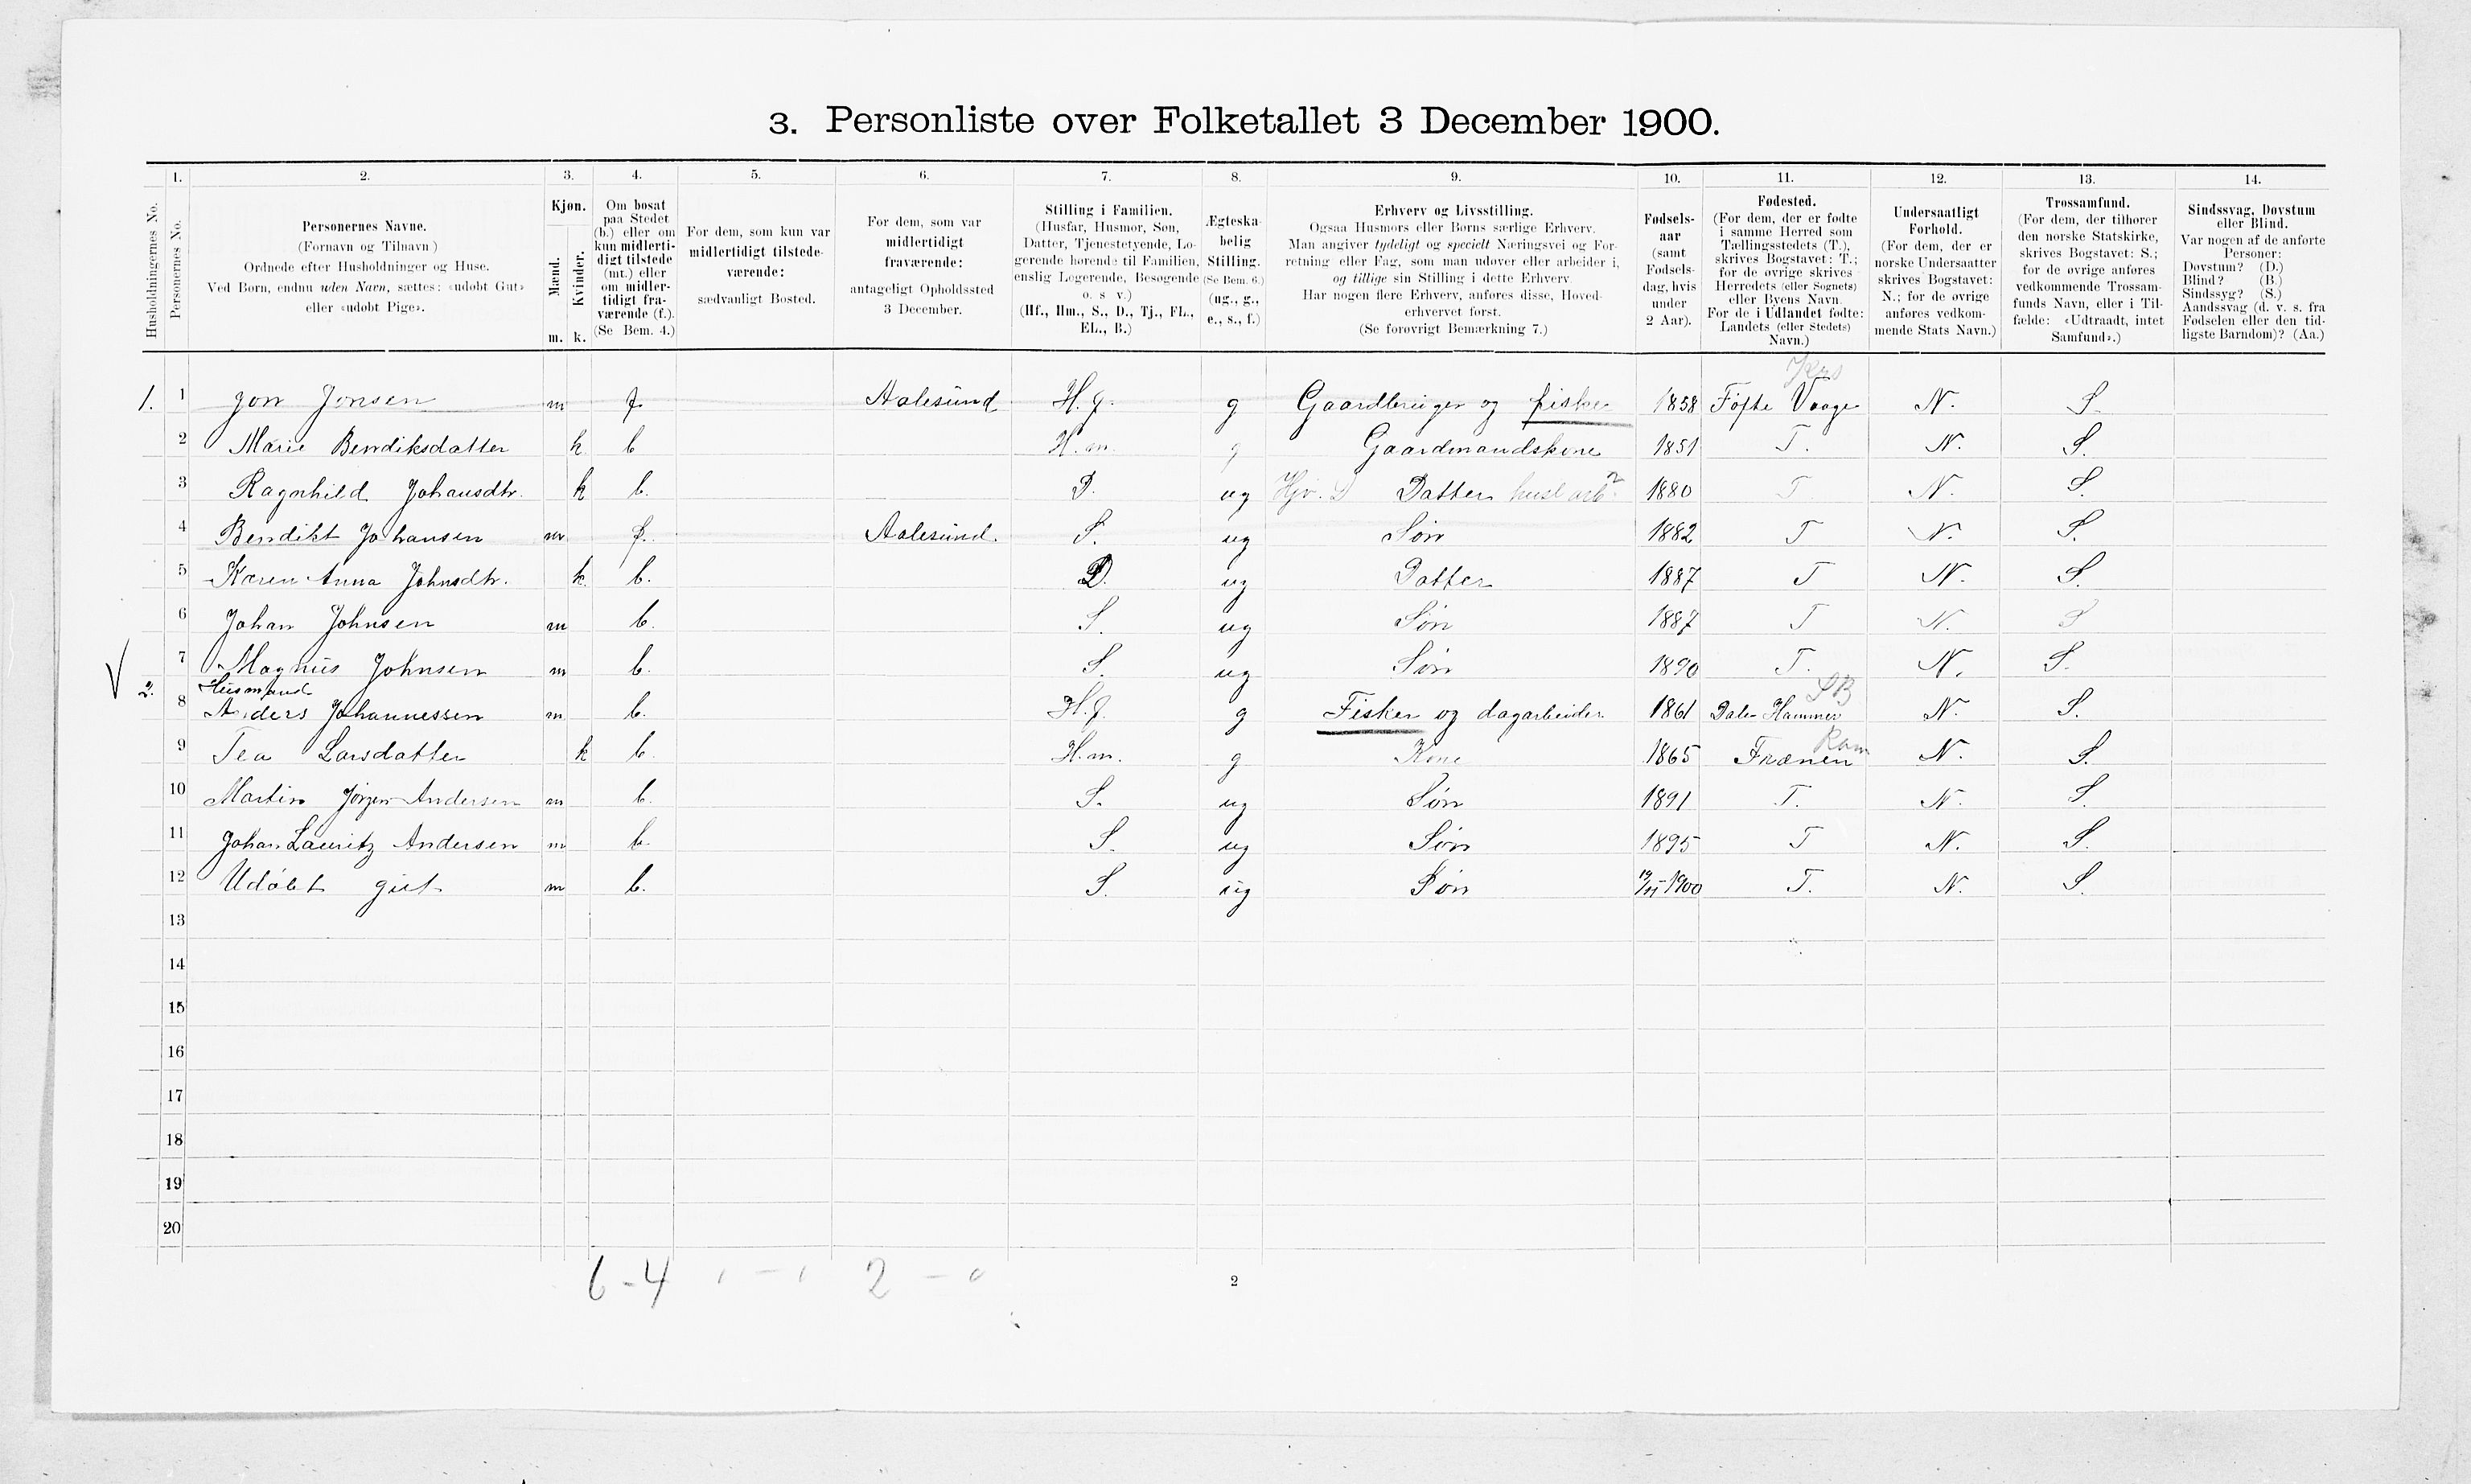 3. Personliste over Folketallet 3 December 1900.
1. 2. 3. 4. 5. 6. 7. 8. 9. 10. 11. 12. 13. 14.
Husholdningernes No.
Personernes No.
Personernes Navne.
(Fornavn og Tilnavn)
Ordnede efter Husholdninger og Huse.
Ved Børn, endnu uden Navn, sættes: «udøbt Gut»
eller «udøbt Pige».
Kjøn.
Mænd. Kvinder.
m. k.
Om bosat
paa Stedet
(b.) eller om
kun midlerti-
digt tilstede
(mt.) eller
om midler-
tidigt fra-
værende (f.).
(Se Bem. 4.)
For dem, som kun var
midlertidigt tilstede-
værende:
sædvanligt Bosted.
For dem, som var
midlertidigt
fraværende:
antageligt Opholdssted
3 December.
Stilling i Familien.
(Husfar, Husmor, Søn,
Datter, Tjenestetyende, Lo-
gerende hørende til Familien,
enslig Logerende, Besøgende
o. s v.)
(Hf., Hm., S., D., Tj., FL.,
EL., B.)
Ægteska-
belig
Stilling.
(Se Bem. 6.)
(ug., g.,
e., s., f.)
Erhverv og Livsstilling.
Ogsaa Husmors eller Børns særlige Erhverv.
Man angiver tydeligt og specielt Næringsvei og For-
retning eller Fag, som man udøver eller arbeider i,
og tillige sin Stilling i dette Erhverv.
Har nogen flere Erhverv, anføres disse, Hoved-
erhvervet først.
(Se forøvrigt Bemærkning 7.)
Fødsels-
aar
(samt
Fødsels-
dag, hvis
under
2 Aar).
Fødested.
(For dem, der er fødte
i samme Herred som
Tællingsstedets (T.),
skrives Bogstavet: T.;
for de øvrige skrives
Herredets (eller Sognets)
eller Byens Navn.
For de i Udlandet fødte:
Landets (eller Stedets)
Navn.)
Undersaatligt
Forhold.
(For dem, der er
norske Undersaatter
skrives Bogstavet:
N.; for de øvrige
anføres vedkom-
mende Stats Navn.)
Trossamfund.
(For dem, der tilhører
den norske Statskirke,
skrives Bogstavet: S.;
for de øvrige anføres
vedkommende Trossam-
funds Navn, eller i Til-
fælde: «Udtraadt, intet
Samfund».)
Sindssvag, Døvstum
eller Blind.
Var nogen af de anførte
Personer:
Døvstum? (D.)
Blind? (B.)
Sindssyg? (S.)
Aandssvag (d. v. s. fra
Fødselen eller den tid-
ligste Barndom)? (Aa.)
1. 1 Jon Jonsen m f Aalesund H.f. g Gaardbruger og fisker 1858 Vaage N. S.
2 Marie Bendiksdatter k b H.m. g Gaardmandskone 1851 T. N. S.
3 Ragnhild Johansdtr. k b. D. ug Datter 1880 T N. S.
4 Bendikt Johansen m f. Aalesund. S. ug Søn 1882 T N. S.
5 Karen Anna Johnsdtr. k b. D. ug Datter 1887 T N. S.
6 Johan Johnsen m b. S. ug Søn 1887 T N. S
7 Magnus Johnsen m b. S. ug Søn 1890 T. N. S.
2. Husmand
8 Anders Johannessen m b. H.f. g Fisker og dagarbeider 1861 N. S.
9 Tea Larsdatter k b. H.m. g Kone 1865 Frænen N. S.
10 Martin Jörgen Andersen m b. S. ug Søn 1891 T. N. S.
11 Johan Lauritz Andersen m b. S. ug Søn 1895 T N. S.
12 Udöbt gut m b. S. ug Søn 1900 T. N. S.
13
14
15
16
17
18
19
20
6-4 2 -
2